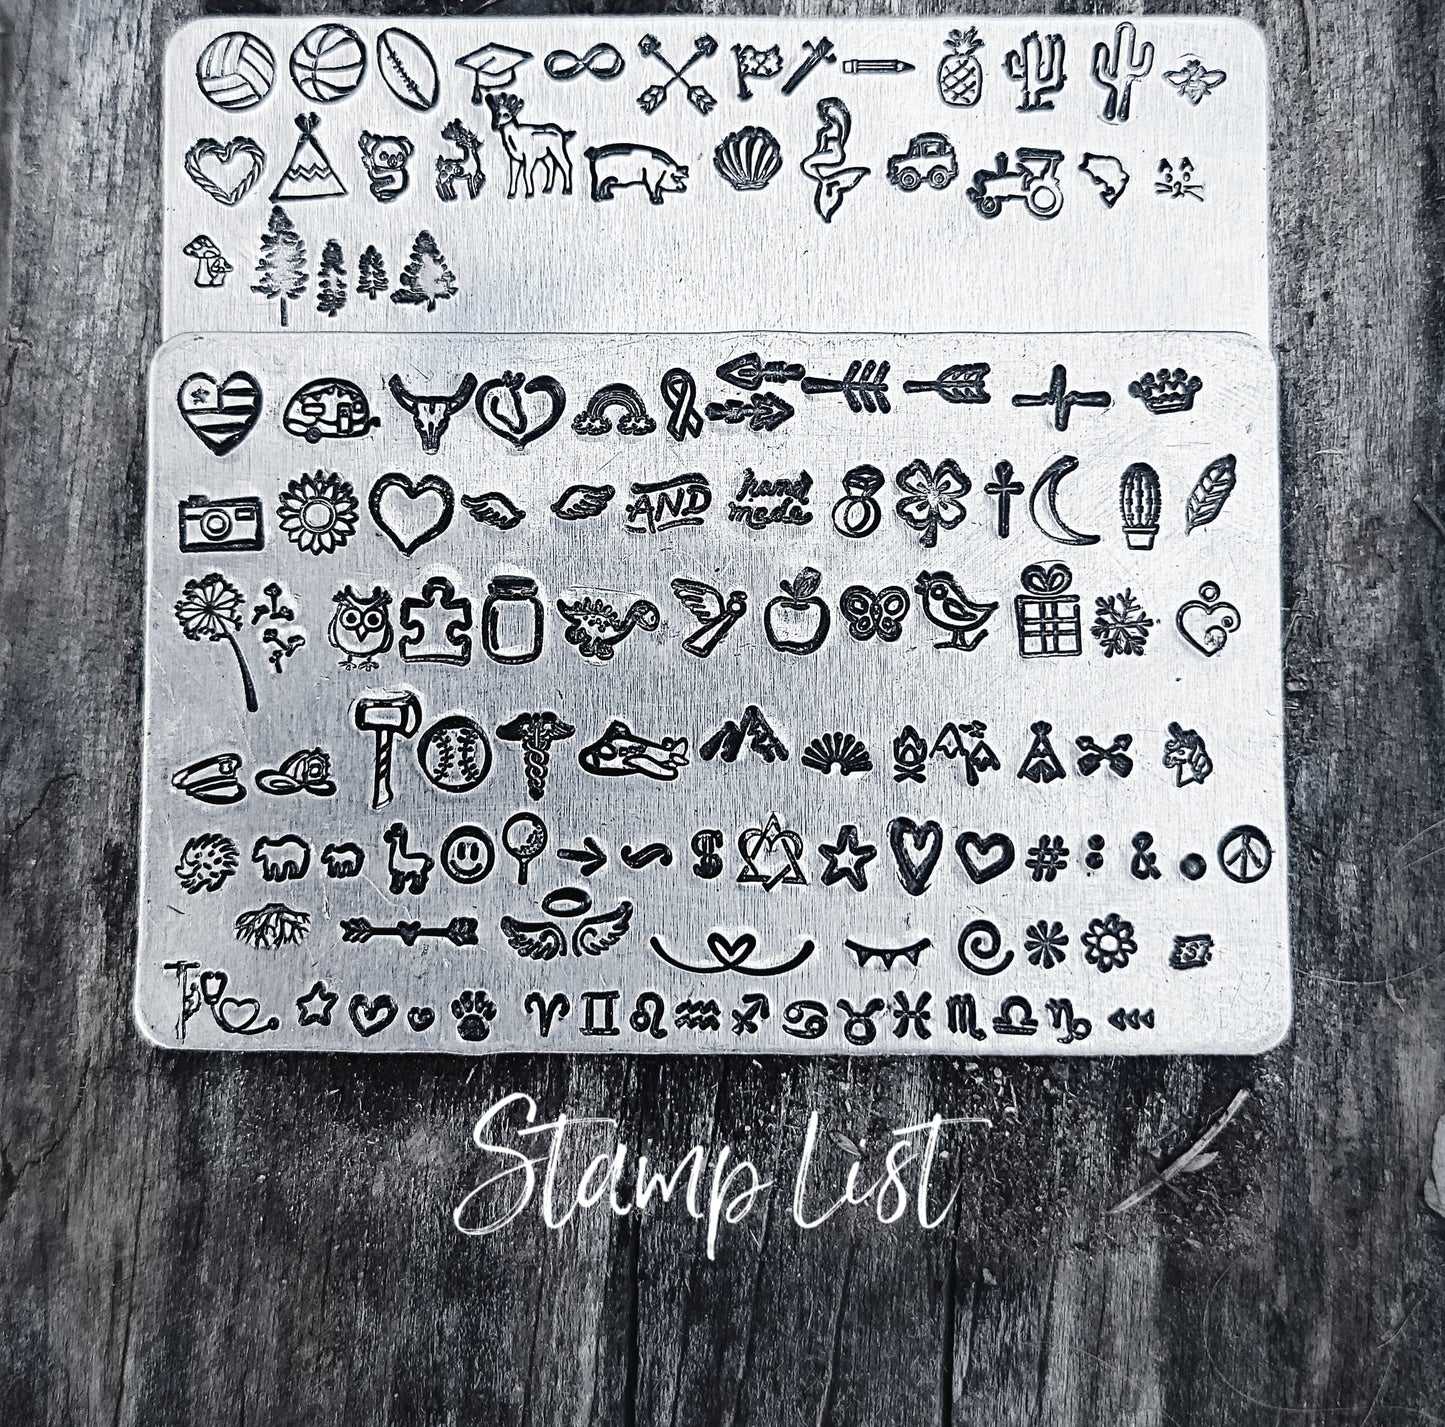 AND
hand
made
$ # : & .
Stamp List